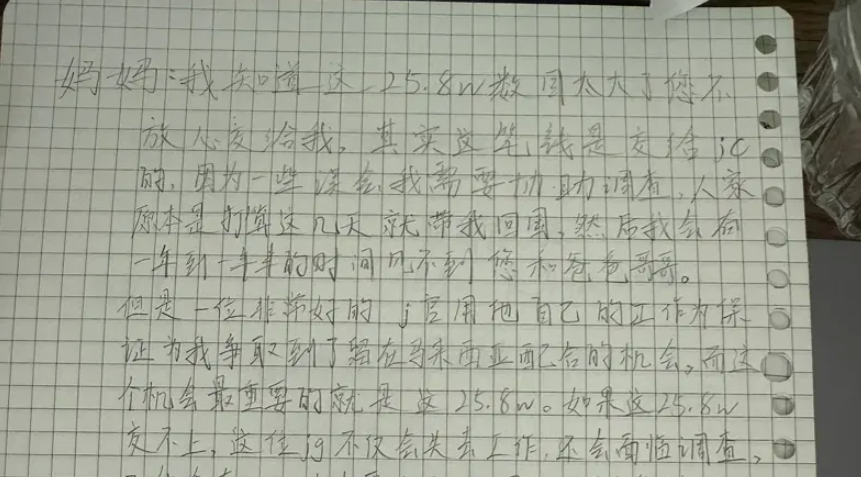 妈妈:我知道这25.8w数目太大了您不
放心交给我,其实这笔钱是交给jc
的,因为一些误会我需要协助调查,人家
原本是打算这几天就带我回国,然后我会在
一年到一年半的时间见不到您和爸爸哥哥。
但是一位非常好的j官用他自己的工作为保
证为我争取到了留在马来西亚配合的机会,而这
个机会最重要的就是这25.8w。如果这25.8w
交不上,这位jg不仅会失去工作,还会面临调查,